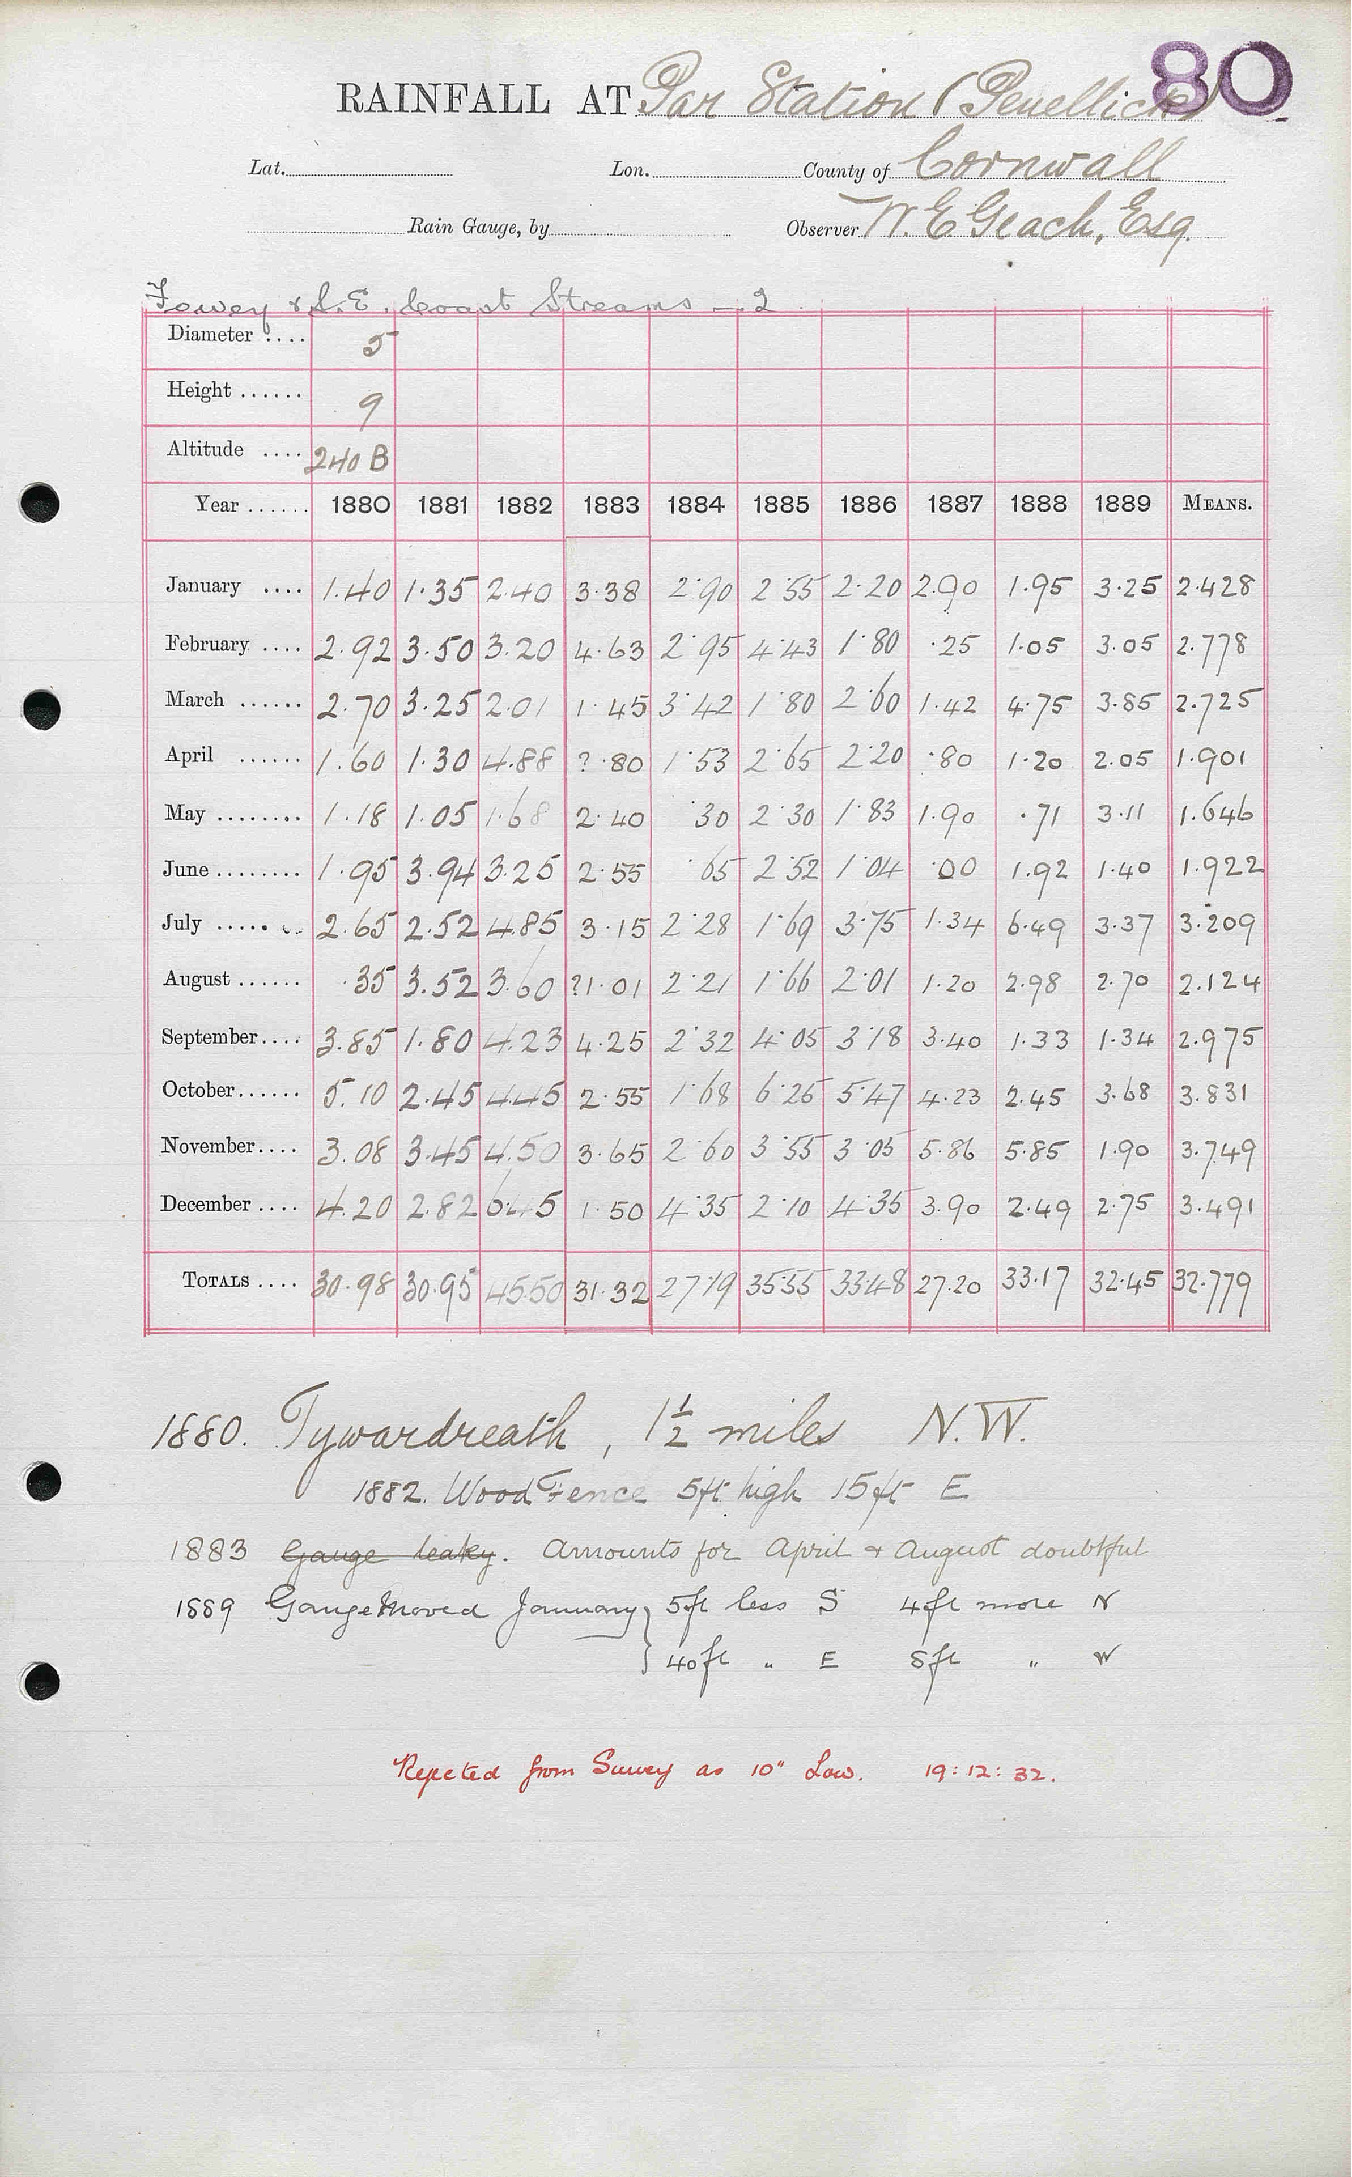 80
RAINFALL AT Par Station (Penellick)
Lat. Lon. County of Cornwall
Rain Gauge, by Observer W. E Geach, Esq.
Fowey & S.E. Coast Streams — 2
Diameter .... 5
Height ...... 9
Altitude .... 240 B
Year ...... 1880 1881 1882 1883 1884 1885 1886 1887 1888 1889 MEANS.
January .... 1.40 1.35 2.40 3.38 2.90 2.55 2.20 2.90 1.95 3.25 2.428
February .... 2.92 3.50 3.20 4.63 2.95 4.43 1.80 .25 1.05 3.05 2.778
March ...... 2.70 3.25 2.01 1.45 3.42 1.80 2.60 1.42 4.75 3.85 2.725
April ...... 1.60 1.30 4.88 ?.80 1.53 2.65 2.20 .80 1.20 2.05 1.901
May ........ 1.18 1.05 1.68 2.40 .30 2.30 1.83 1.90 .71 3.11 1.646
June ........ 1.95 3.94 3.25 2.55 .65 2.52 1.04 .00 1.92 1.40 1.922
July ........ 2.65 2.52 4.85 3.15 2.28 1.69 3.75 1.34 6.49 3.37 3.209
August ...... .35 3.52 3.60 ?1.01 2.21 1.66 2.01 1.20 2.98 2.70 2.124
September.... 3.85 1.80 4.23 4.25 2.32 4.05 3.18 3.40 1.33 1.34 2.975
October...... 5.10 2.45 4.45 2.55 1.68 6.25 5.47 4.23 2.45 3.68 3.831
November.... 3.08 3.45 4.50 3.65 2.60 3.55 3.05 5.86 5.85 1.90 3.749
December .... 4.20 2.82 6.45 1.50 4.35 2.10 4.35 3.90 2.49 2.75 3.491
TOTALS .... 30.98 30.95 45.50 31.32 27.19 35.55 33.48 27.20 33.17 32.45 32.779
1880. Tywardreath, 1½ miles N.W.
1882. Wood Fence 5ft high 15ft E
1883 Gauge leaky. Amounts for April & August doubtful
1889 Gauge Moved January } 5ft less S 4ft more N
40ft " E 8ft " W
Rejected from Survey as 10" Low. 19:12:32.